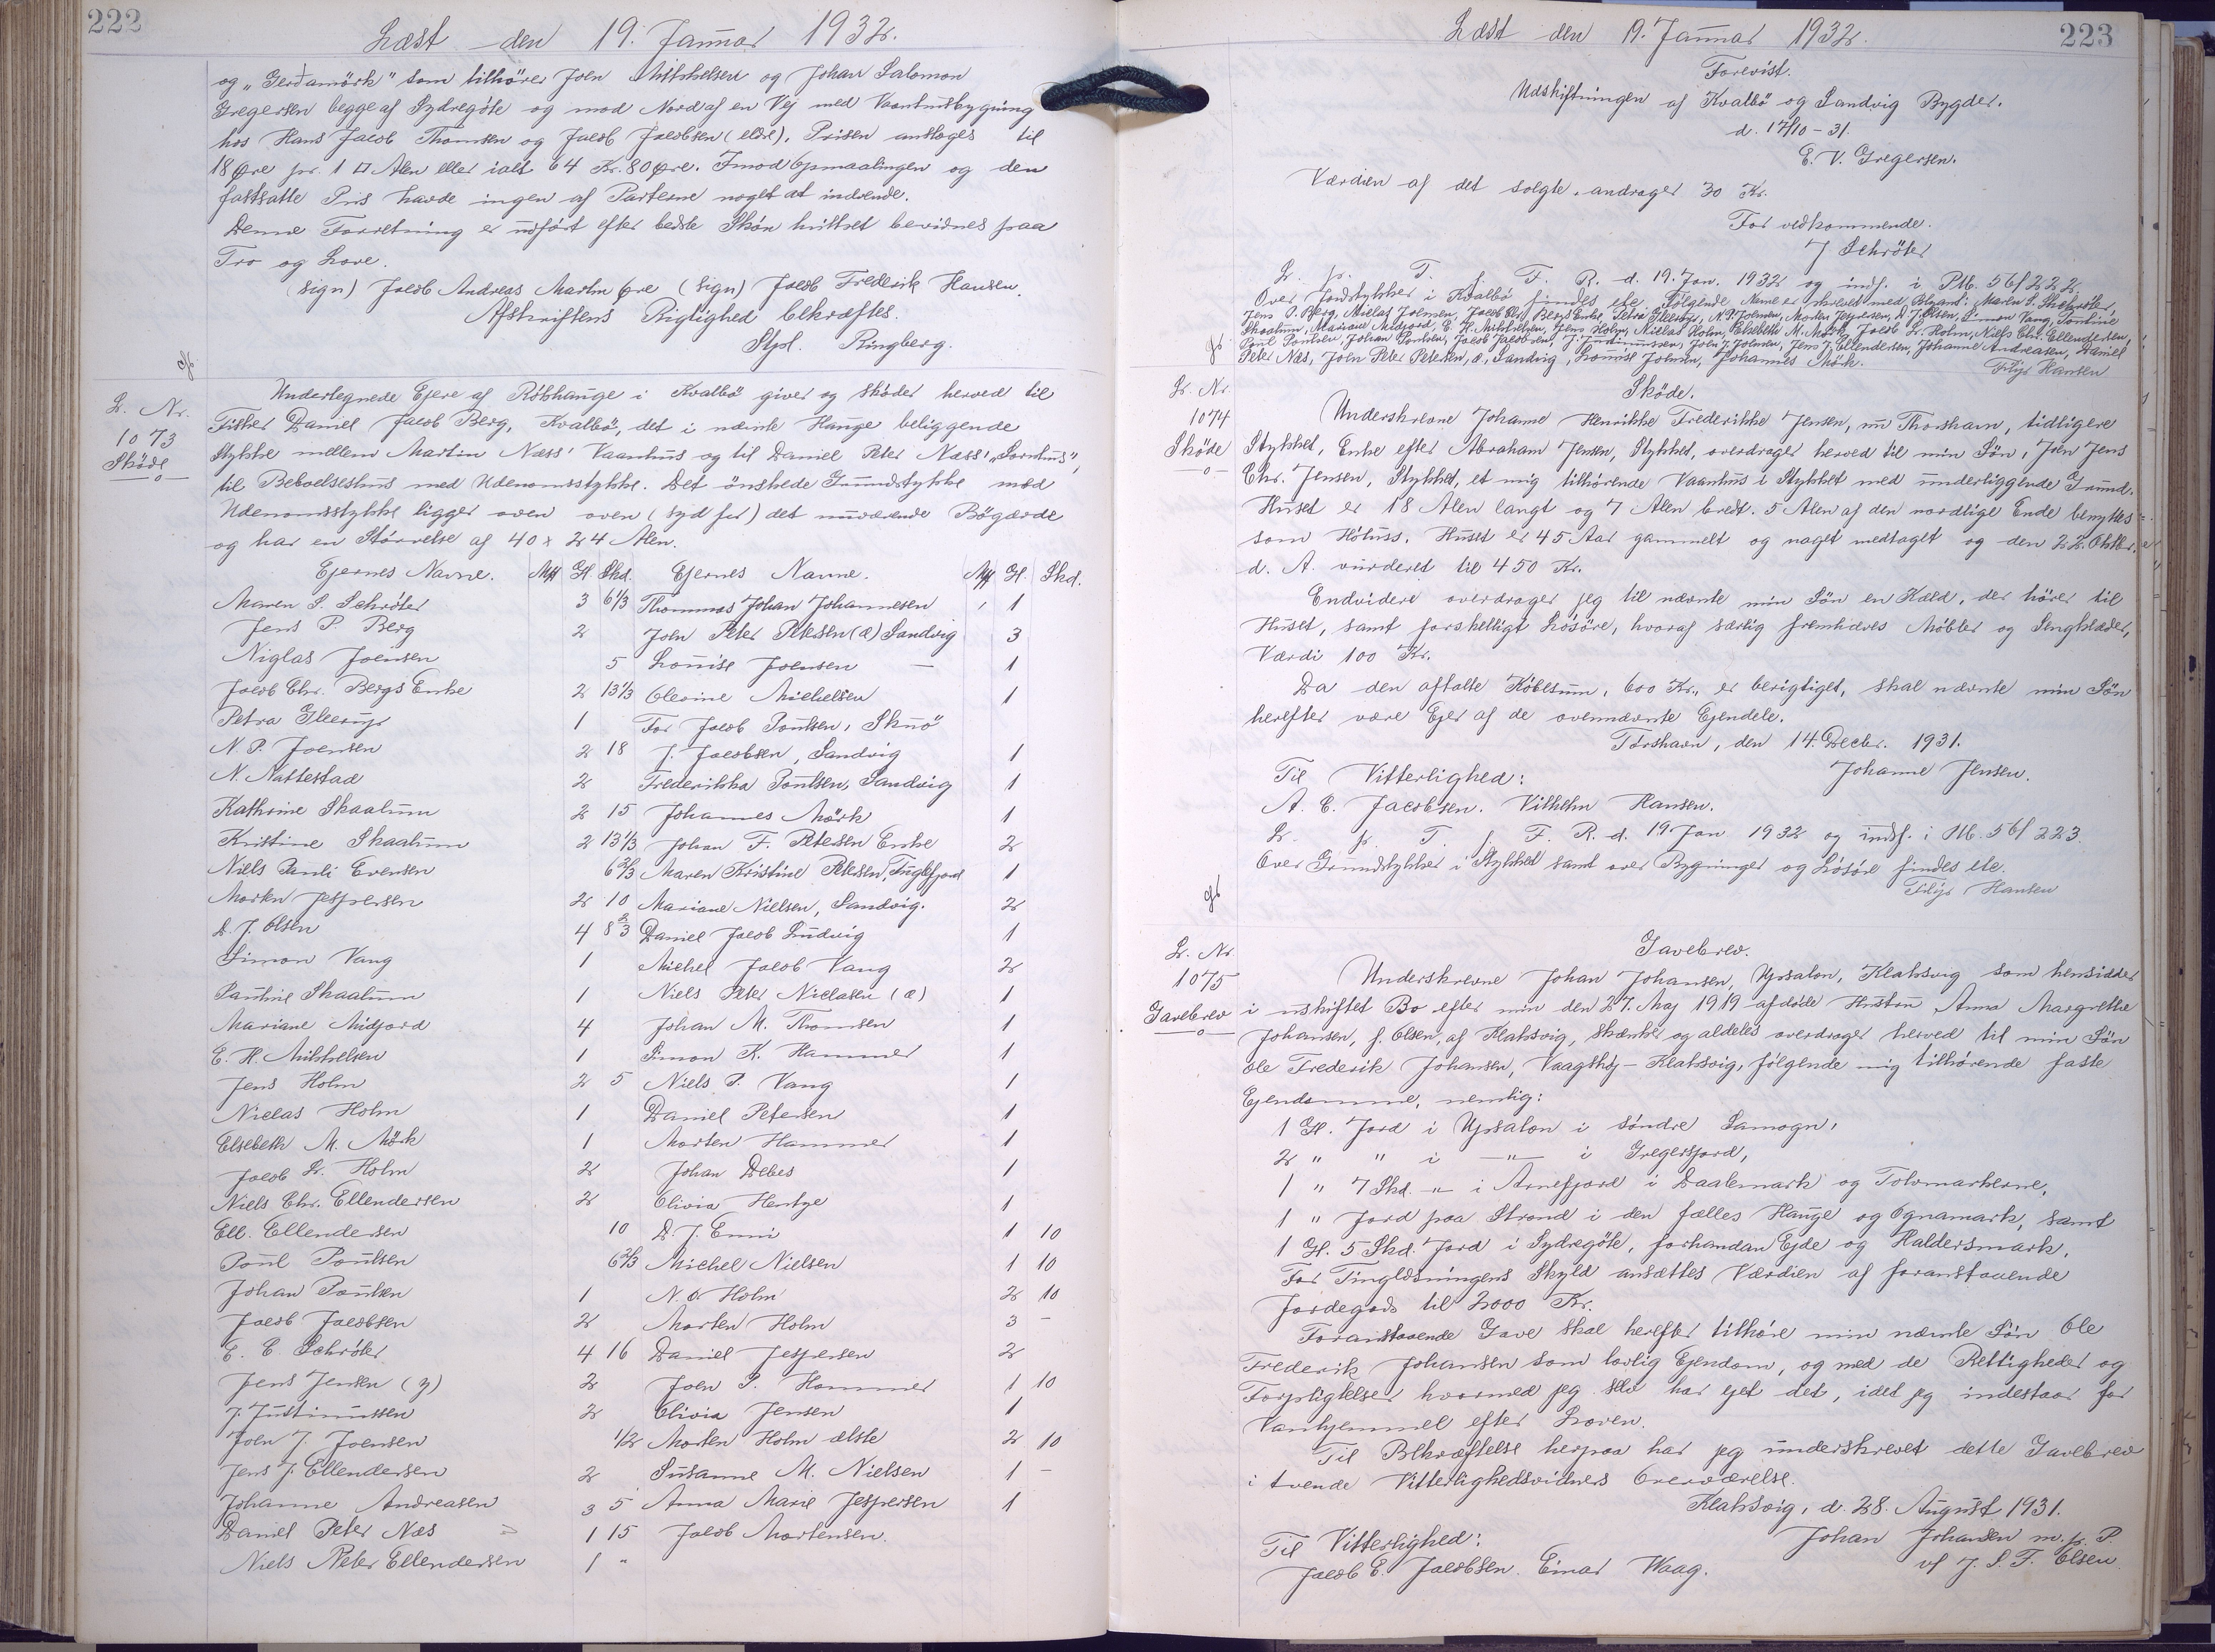 222
Læst den 19. Januar 1932.
og "Gerdamörk" som tilhører Joen Mikkelsen og Johan Salomon
Gregersen begge af Sydregöte og mod Nord af en Vej med Vaanhusbygning
hos Hans Jacob Thomsen og Jacob Jacobsen (eldre). Prisen ansloges til
18 Øre pr. 1 □ Alen eller ialt 64 Kr. 80 Øre. Imod Opmaalingen og den
fastsatte Pris havde ingen af Parterne noget at indvende.
Denne Forretning er udført efter bedste Skön hvilket bevidnes paa
Tro og Love.
(sign) Jacob Andreas Martin Øre (sign) Jacob Frederik Hansen.
Afskriftens Rigtighed bekræftes.
Stpl. Ringberg.
L. Nr.
1073
Sköde
Undertegnede Ejere af Rókhauge i Kvalbö giver og sköder herved til
Fisker Daniel Jacob Berg, Kvalbö, det i nævnte Hauge beliggende
Stykke mellem Martin Næss' Vaanhus og til Daniel Peter Næss' "Sornhus",
til Beboelseshus med Udenomsstykke. Det önskede Grundstykke med
Udenomsstykke ligger oven oven (syd for) det nuværende Bögærde
og har en Störrelse af 40 x 24 Alen.
Ejernes Navne. Mk Gl. Skd. Ejernes Navne. Mk Gl. Skd.
Maren S. Schröter 3 6 1/3 Thommas Johan Johannesen 1
Jens P. Berg 2 Joen Peter Petersen (æ) Sandvig 3
Niglas Joensen 5 Louise Joensen — 1
Jacob Chr. Bergs Enke 2 13 1/3 Olevine Michelsen 1
Petra Gleerup 1 For Jacob Poulsen, Skuö
N. P. Joensen 2 18 J. Jacobsen, Sandvig 1
N. Nattestad 2 Frederikka Poulsen, Sandvig 1
Kathrine Skaalum 2 15 Johannes Mörk 1
Kristine Skaalum 2 13 1/3 Johan F. Petersen Enke 2
Niels Pauli Evensen 6 2/3 Maren Kristine Petersen, Fuglefjord 1
Morten Jespersen 2 10 Mariane Nielsen, Sandvig. 2
D. J. Olsen 4 8 2/3 Daniel Jacob Ludvig 1
Simon Vang 1 Michel Jacob Vang 2
Pauline Skaalum 1 Niels Peter Niclasen (æ) 1
Mariane Midjord 4 Johan M. Thomsen 1
E. H. Mikkelsen 1 Simon K. Hammer 1
Jens Holm 2 5 Niels P. Vang 1
Niclas Holm 1 Daniel Petersen 1
Elsebeth M. Mörk 1 Morten Hammer 1
Jacob L. Holm 2 Johan Debes 1
Niels Chr. Ellendersen 2 Olivia Hentze 1
Ell. Ellendersen 10 D. J. Enni 1 10
Poul Poulsen 6 2/3 Michel Nielsen 1 10
Johan Poulsen 1 N. O. Holm 2 10
Jacob Jacobsen 2 Morten Holm 3 –
E. C. Schröter 4 16 Daniel Jespersen 2
Jens Jensen (y) 2 Joen P. Hammer 1 10
J. Justinussen 2 Olivia Jensen 1
Joen J. Joensen 1/2 Morten Holm ælste 2 10
Jens J. Ellendersen 2 Susanne M. Nielsen 1 –
Johanne Andreasen 3 5 Anna Marie Jespersen 1
Daniel Peter Næs 1 15 Jacob Mortensen.
Niels Peter Ellendersen 1 "
Læst den 19. Januar 1932.
223
Forevist.
Udskiftningen af Kvalbö og Sandvig Bygder.
d. 17/10 – 31.
E. V. Gregersen.
Værdien af det solgte andrager 30 Kr.
For vedkommende.
J Schröter
L. p. T. f. F. R. d. 19. Jan. 1932 og indf. i Ptb. 56 f 222.
Over Jordstykker i Kvalbö findes etc. Følgende Navne er skrevet med Blyant: Maren S. Schröter,
Jens P. Berg, Nielas Joensen, Jacob Chr. Bergs Enke, Petra Gleerup, N. P. Joensen, Morten Jespersen, D. J. Olsen, Simon Vang, Pauline
Skaalum, Mariane Midjord, E. H. Mikkelsen, Jens Holm, Nielas Holm, Elsebeth M. Mörk, Jacob L. Holm, Niels Chr. Ellendersen,
Poul Poulsen, Johan Poulsen, Jacob Jacobsen, J. Justinussen, Joen J. Joensen, Jens J. Ellendersen, Johanne Andreasen, Daniel
Peter Næs, Joen Peter Petersen, æ, Sandvig, Louise Joensen, Johannes Mörk.
Filip Hansen
L. Nr.
1074
Sköde
Sköde.
Underskrevne Johanne Henrikke Frederikke Jensen, nu Thorshavn, tidligere
Stykket, Enke efter Abraham Jensen, Stykket, overdrager herved til min Sön, Joen Jens
Chr. Jensen, Stykket, et mig tilhörende Vaanhus i Stykket med underliggende Grund.
Huset er 18 Alen langt og 7 Alen bredt. 5 Alen af den nordlige Ende benyttes
som Hötuss. Huset er 45 Aar gammelt og noget medtaget og den 22. Oktbr.
d. A. vurderet til 450 Kr.
Endvidere overdrager jeg til nævnte min Sön en Kæld, der hörer til
Huset, samt forskelligt Lösöre, hvoraf særlig fremhæves Möbler og Sengklæder,
Værdi 100 Kr.
Da den aftalte Köbesum, 600 Kr., er berigtiget, skal nævnte min Sön
herefter være Ejer af de ovennævnte Ejendele.
Torshavn, den 14. Decbr. 1931.
Til Vitterlighed: Johanne Jensen.
A. C. Jacobsen. Vilhelm Hansen.
L. p. T. f. F. R. d. 19. Jan 1932 og indf. i Ptb. 56 f 223.
Over Grundstykker i Stykket samt over Bygninger og Lösöre findes etc.
Filip Hansen
L. Nr.
1075
Gavebrev
Gavebrev.
Underskrevne Johan Johansen, Upsalon, Klaksvig som hensidder
i uskiftet Bo efter min den 27. Maj 1919 afdöde Hustru Anna Margrethe
Johansen, f. Olsen, af Klaksvig, skænker og aldeles overdrager herved til min Sön
Ole Frederik Johansen, Vaagshöj – Klaksvig, fölgende mig tilhörende faste
Ejendomme, nemlig:
1 Gl. Jord i Upsalon i söndre Samogn,
2 " " i —"— i Gregersjord,
1 " 7 Skd. –"– i Arnefjord i Daalemark og Tolvmarkerne,
1 " Jord paa Strond i den fælles Hauge og Ognamark, samt
1 Gl. 5 Skd. Jord i Sydregöte, forhandan Ejde og Haldersmark.
For Tinglæsningens Skyld ansættes Værdien af foranstaaende
Jordegods til 2000 Kr.
Foranstaaende Gave skal herefter tilhöre min nævnte Sön Ole
Frederik Johansen som lovlig Ejendom, og med de Rettigheder og
Forpligtelser hvormed jeg selv har ejet det, idet jeg indestaar for
Vanhjemmel efter Loven.
Til Bekræftelse herpaa har jeg underskrevet dette Gavebrev
i tvende Vitterlighedsvidners Overværelse.
Klaksvig, d. 28. August 1931.
Til Vitterlighed: Johan Johansen m. p. P.
Jacob E. Jacobsen. Einar Waag. v/ J. S. F. Olsen